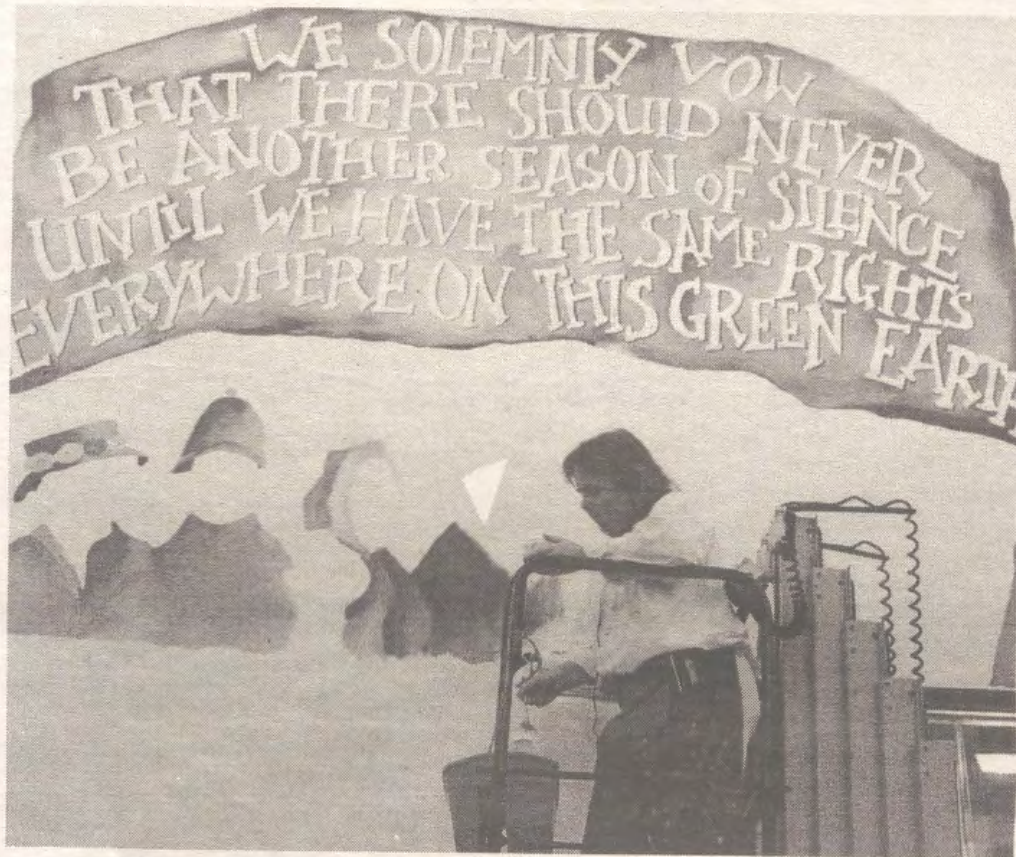 WE SOLEMNLY VOW
THAT THERE SHOULD NEVER
BE ANOTHER SEASON OF SILENCE
UNTIL WE HAVE THE SAME RIGHTS
EVERYWHERE ON THIS GREEN EARTH